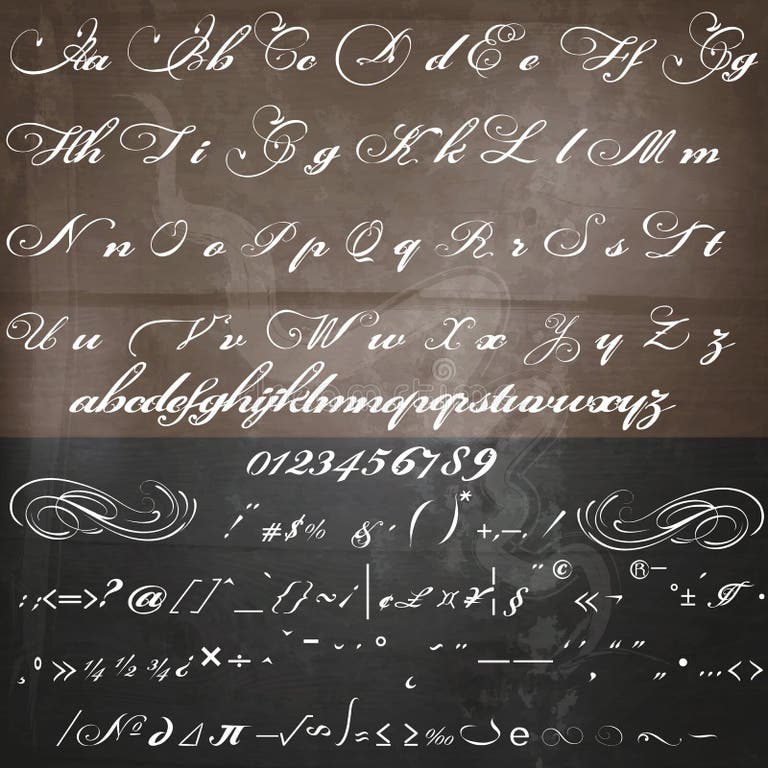 Aa Bb Cc Dd Ee Ff Gg
Hh Ii Gg Kk Ll Mm
Nn Oo Pp Qq Rr Ss Tt
Uu Vv Ww Xx Yy Zz
abcdefghijklmnopqrstuvwxyz
0123456789
!"#$% &'()*+,-./
:;<=>?@[\]^_`{|}~¡¢£¤¥¦§¨©«¬®¯°±´¶·
¸º»¼½¾¿×÷ˆˇ¯˘˙˚˛˜˝–—‘’‚“”„•…‹›
⁄№∂∆π−√∞∫≈≤≥‰